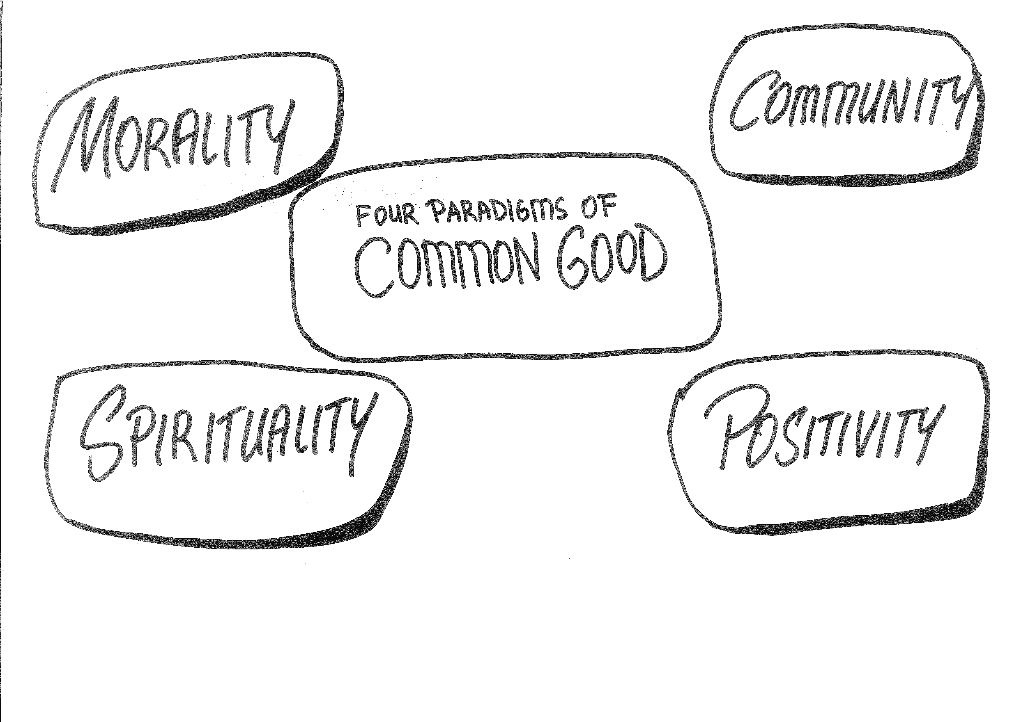 MORALITY
COMMUNITY
FOUR PARADIGMS OF
COMMON GOOD
SPIRITUALITY
POSITIVITY